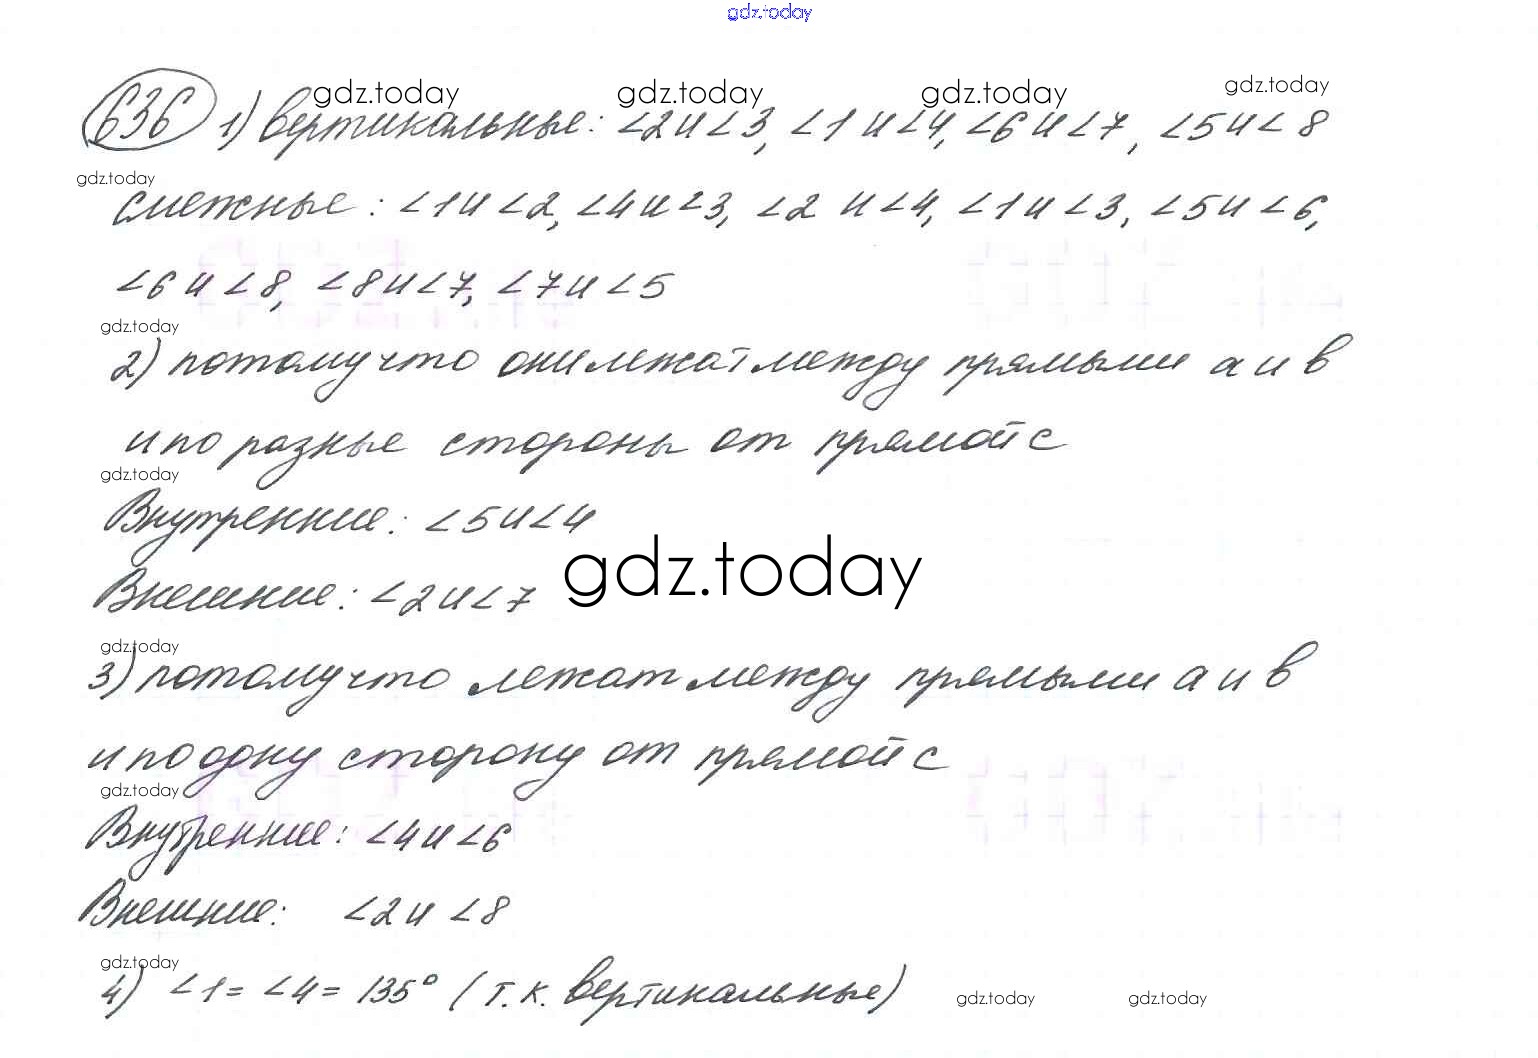 gdz.today
gdz.today gdz.today gdz.today gdz.today
636 1) вертикальные: ∠2 и ∠3, ∠1 и ∠4, ∠6 и ∠7, ∠5 и ∠8
gdz.today
смежные: ∠1 и ∠2, ∠4 и ∠3, ∠2 и ∠4, ∠1 и ∠3, ∠5 и ∠6,
∠6 и ∠8, ∠8 и ∠7, ∠7 и ∠5
gdz.today
2) потому что они лежат между прямыми а и в
и по разные стороны от прямой с
gdz.today
Внутренние: ∠5 и ∠4
gdz.today
Внешние: ∠2 и ∠7
gdz.today
3) потому что лежат между прямыми а и в
и по одну сторону от прямой с
gdz.today
Внутренние: ∠4 и ∠6
Внешние: ∠2 и ∠8
gdz.today
4) ∠1 = ∠4 = 135° (т.к. вертикальные)
gdz.today gdz.today